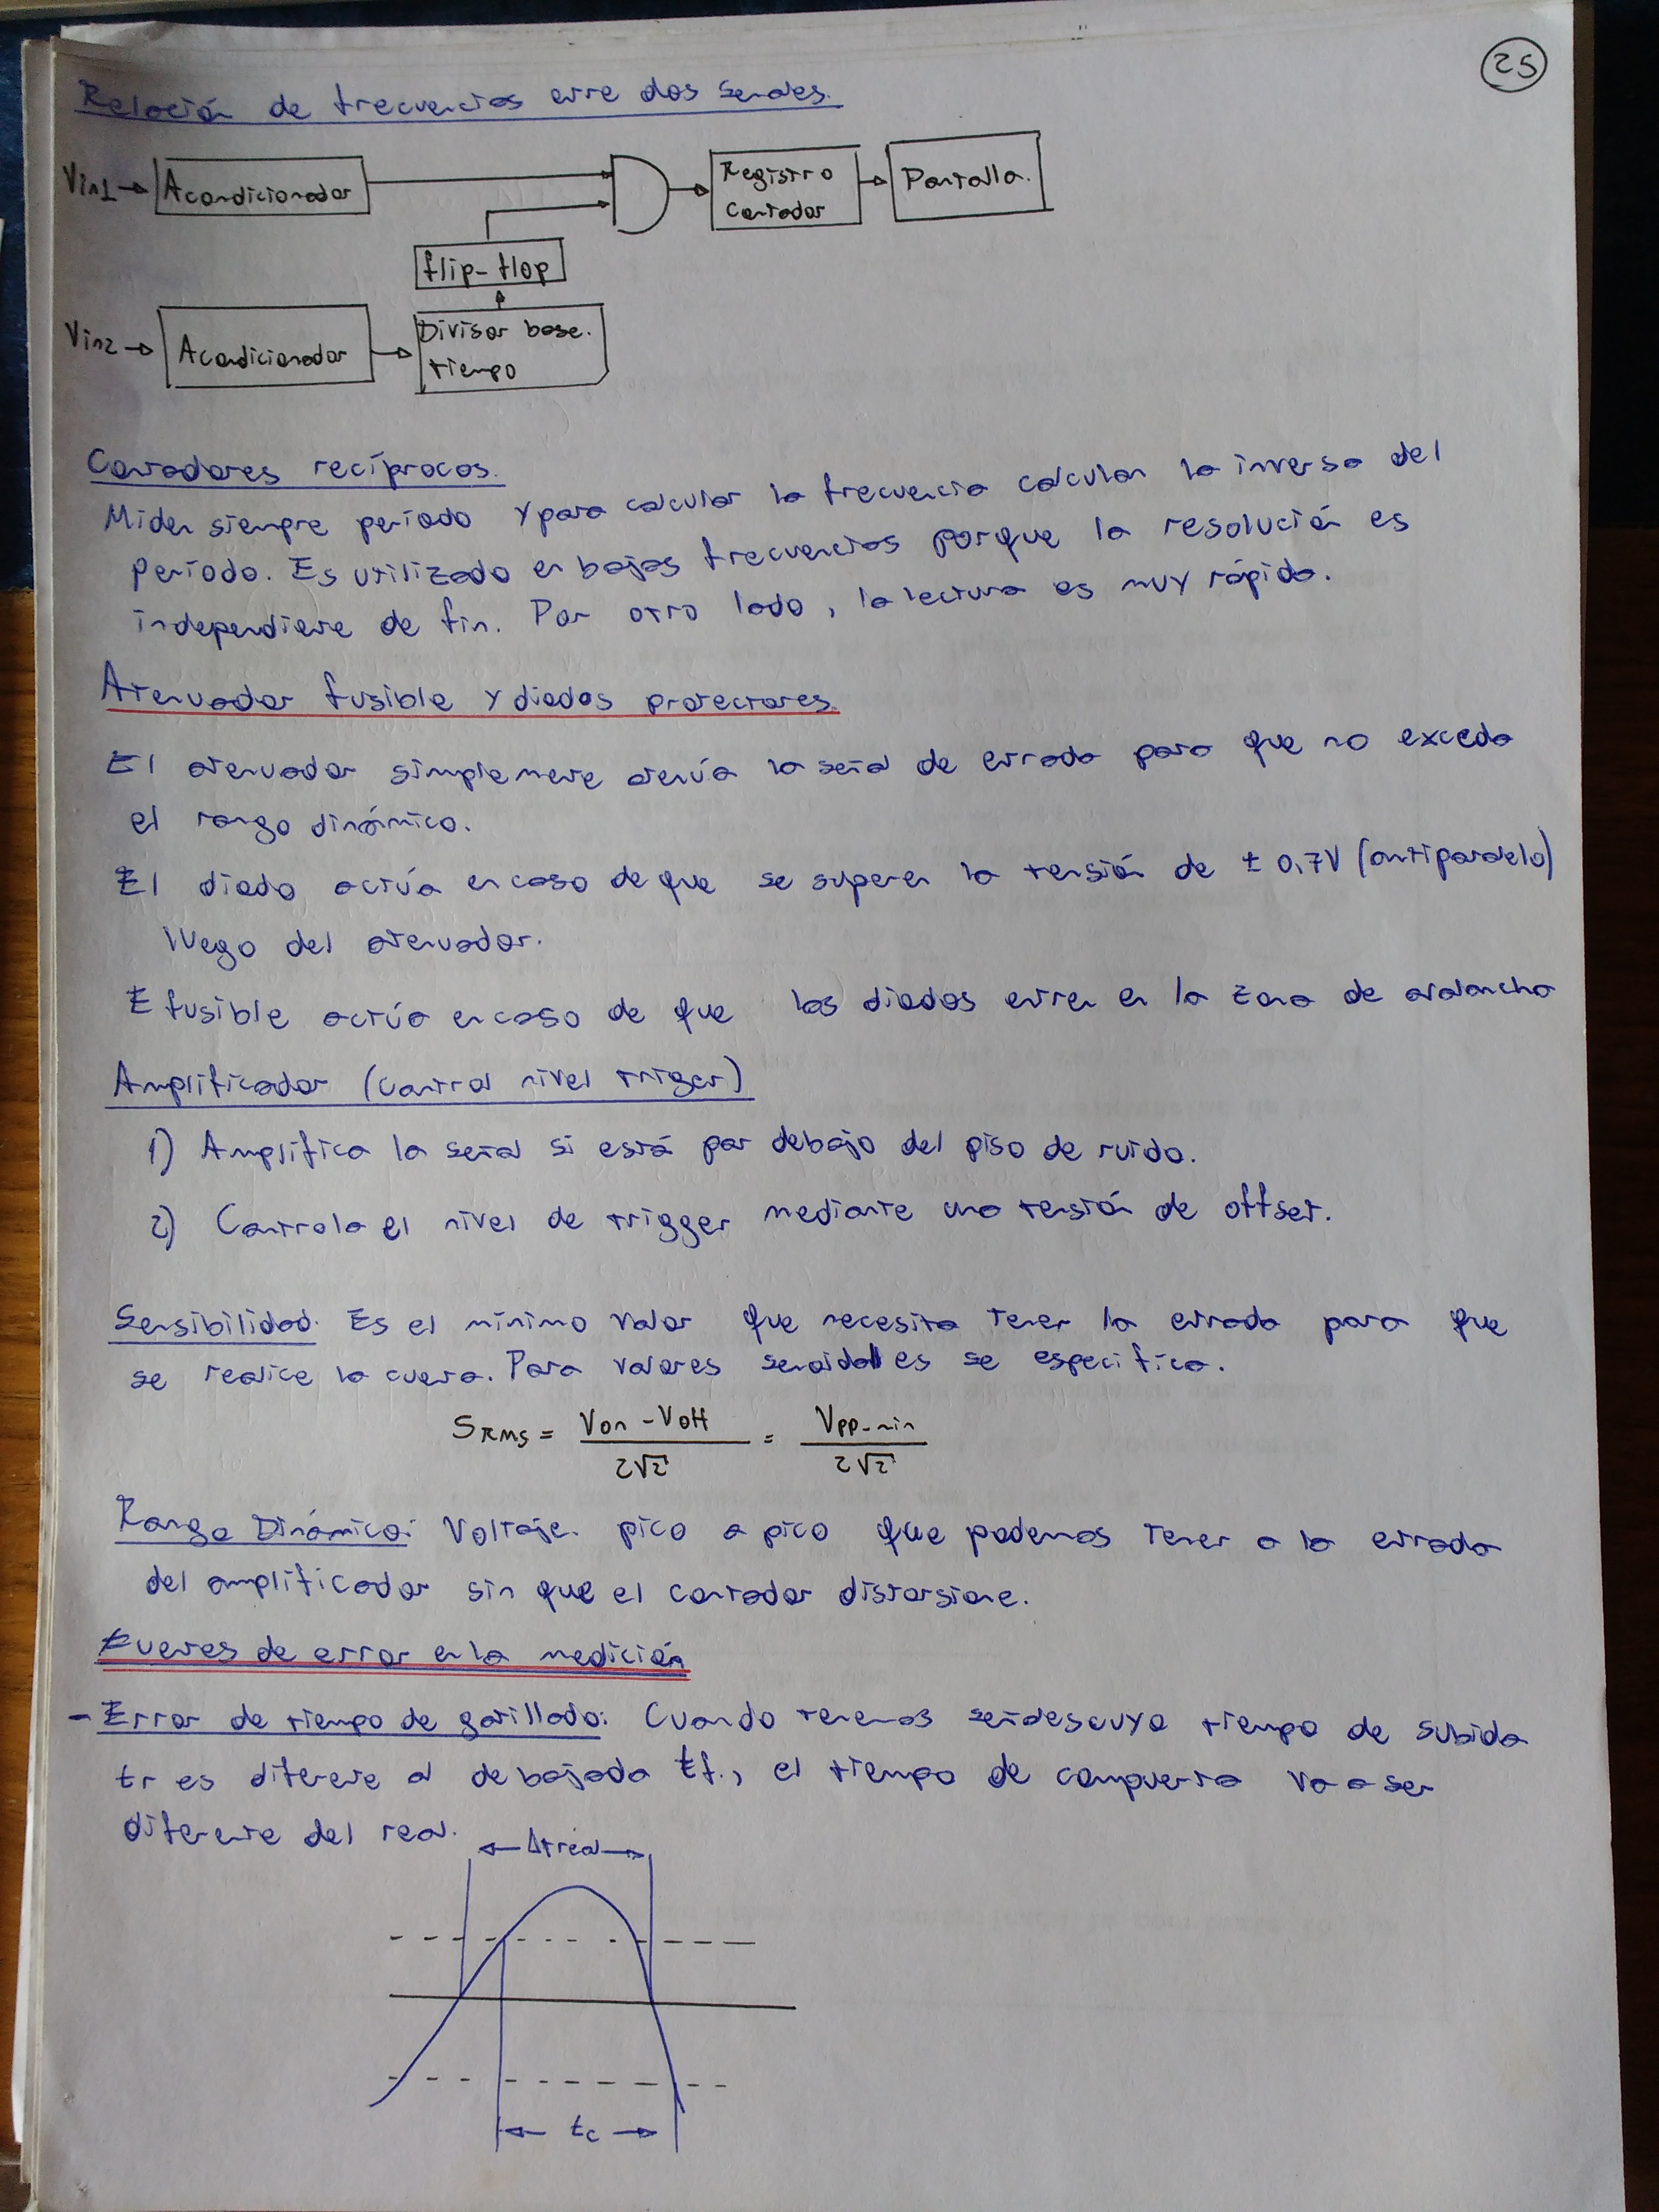 25
Relación de frecuencias entre dos señales.
Vin1 → Acondicionador
Registro
Contador
Pantalla.
flip-flop
Vin2 → Acondicionador
Divisor base.
tiempo
Contadores recíprocos.
Miden siempre período y para calcular la frecuencia calculan la inversa del
período. Es utilizado en bajas frecuencias porque la resolución es
independiente de fin. Por otro lado, la lectura es muy rápida.
Atenuador fusible y diodos protectores.
El atenuador simplemente atenúa la señal de entrada para que no exceda
el rango dinámico.
El diodo actúa en caso de que se superen la tensión de ± 0,7V (antiparalelo)
luego del atenuador.
E fusible actúa en caso de que los diodos entren en la zona de avalancha
Amplificador (control nivel triger)
1) Amplifica la señal si está por debajo del piso de ruido.
2) Controla el nivel de trigger mediante una tensión de offset.
Sensibilidad: Es el mínimo valor que necesita tener la entrada para que
se realice la cuenta. Para valores senoidales se especifica.
SRMS = (Von - Voff) / 2√2 = Vpp-min / 2√2
Rango Dinámico: Voltaje pico a pico que podemos tener a la entrada
del amplificador sin que el contador distorsione.
Fuentes de error en la medición
- Error de tiempo de gatillado: Cuando tenemos señales cuyo tiempo de subida
tr es diferente al de bajada tf., el tiempo de compuerta va a ser
diferente del real.
Δt real
tc